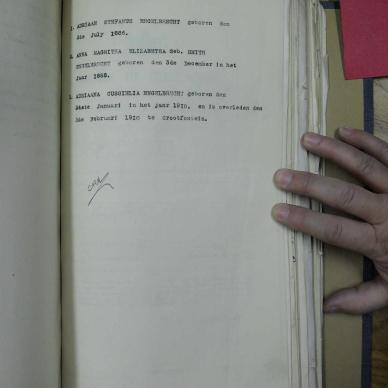 1. ADRIAAN STEFANUS ENGELBRECHT geboren den
2de July 1886.
2. ANNA MAGRITHA ELIZABETHA Geb. SMITH
ENGELBRECHT geboren den 3de December in het
Jaar 1888.
3. ADRIAANA ENGELBRECHT geboren den
Januari in het jaar 1910, en is overleden den
3de Februari 1910 te Grootfontein.